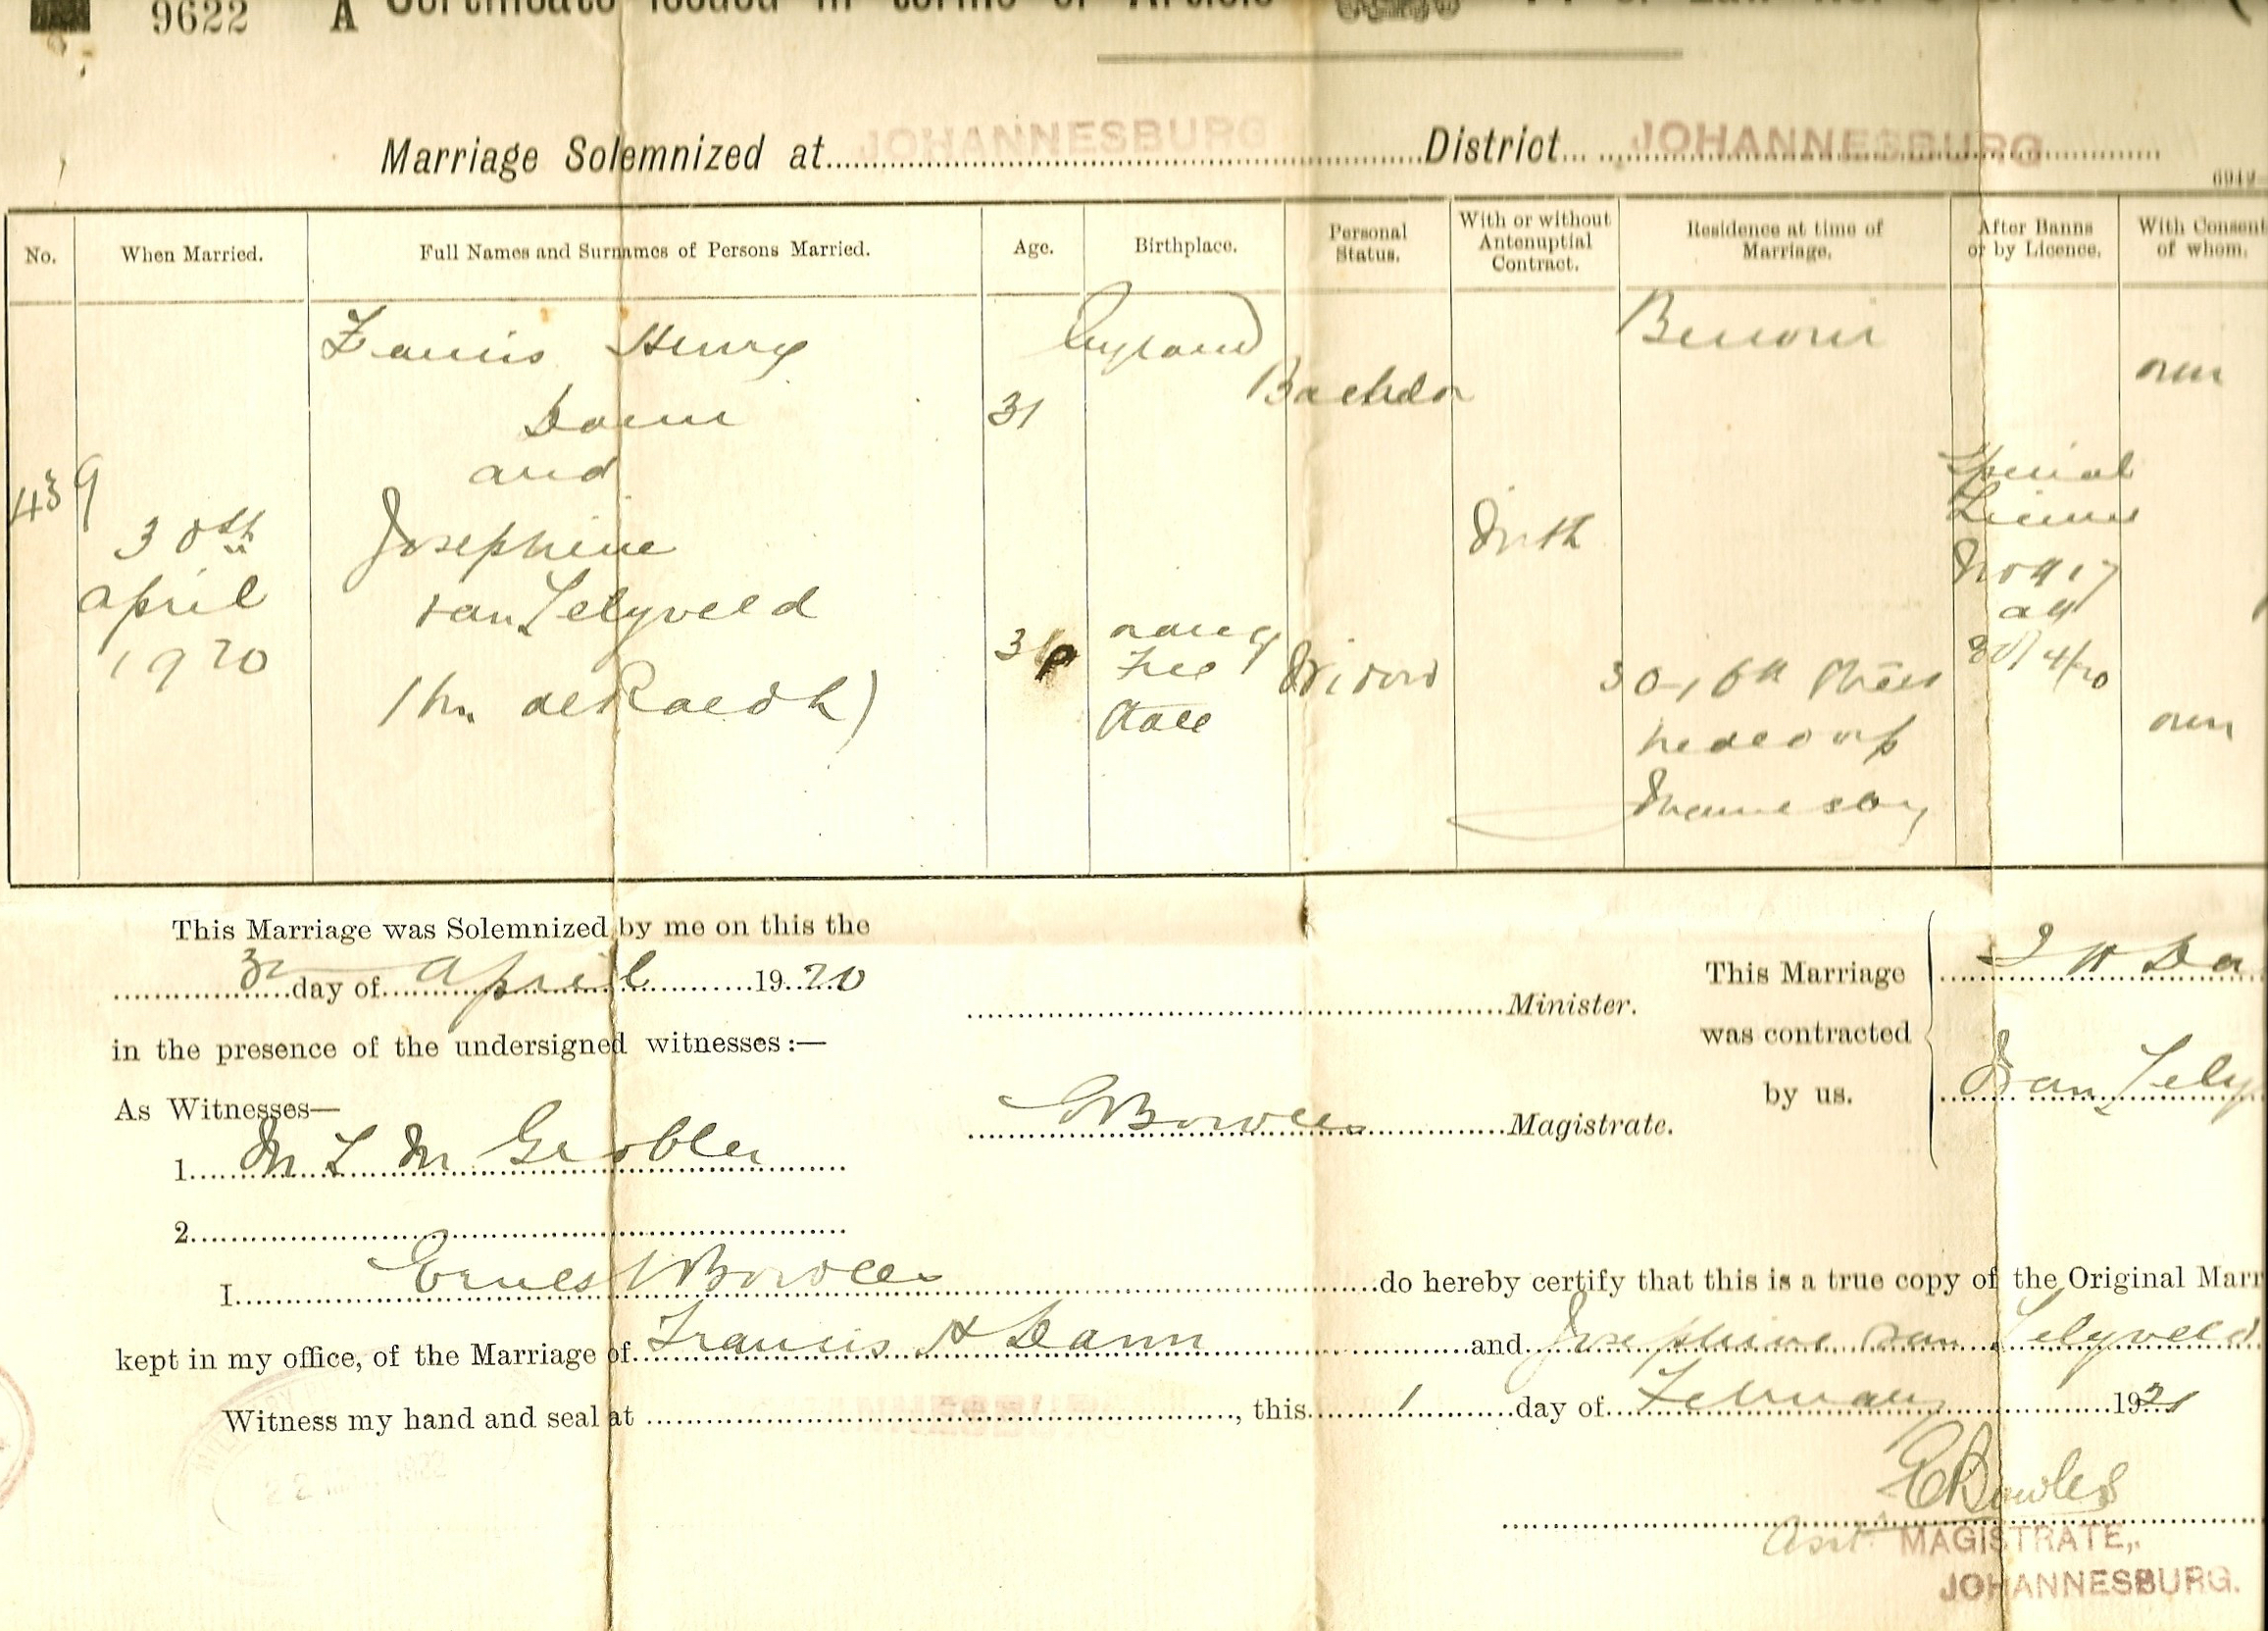 9622 A Certificate issued in terms of Article
Marriage Solemnized at JOHANNESBURG District JOHANNESBURG
No. When Married. Full Names and Surnames of Persons Married. Age. Birthplace. Personal Status. With or without Antenuptial Contract. Residence at time of Marriage. After Banns or by Licence. With Consent of whom.
Francis Henry
England
Benoni
own
Bachelor
Dann
31
and
Special
439
Licence
30th
Josephine
With
April
van Lelyveld
Orange
1920
Free
Widow
30/4/20
State
own
This Marriage was Solemnized by me on this the
30 day of April 1920
Minister.
in the presence of the undersigned witnesses:—
As Witnesses—
1. M L M Grobler
EBowles Magistrate.
This Marriage
was contracted
by us.
F H Da
van Lely
2.
I Ernest Bowles do hereby certify that this is a true copy of the Original Marr
kept in my office, of the Marriage of Francis H Dann and Josephine van Lelyveld
Witness my hand and seal at, this 1 day of February 1921
EBowles
Asst. MAGISTRATE,
JOHANNESBURG.